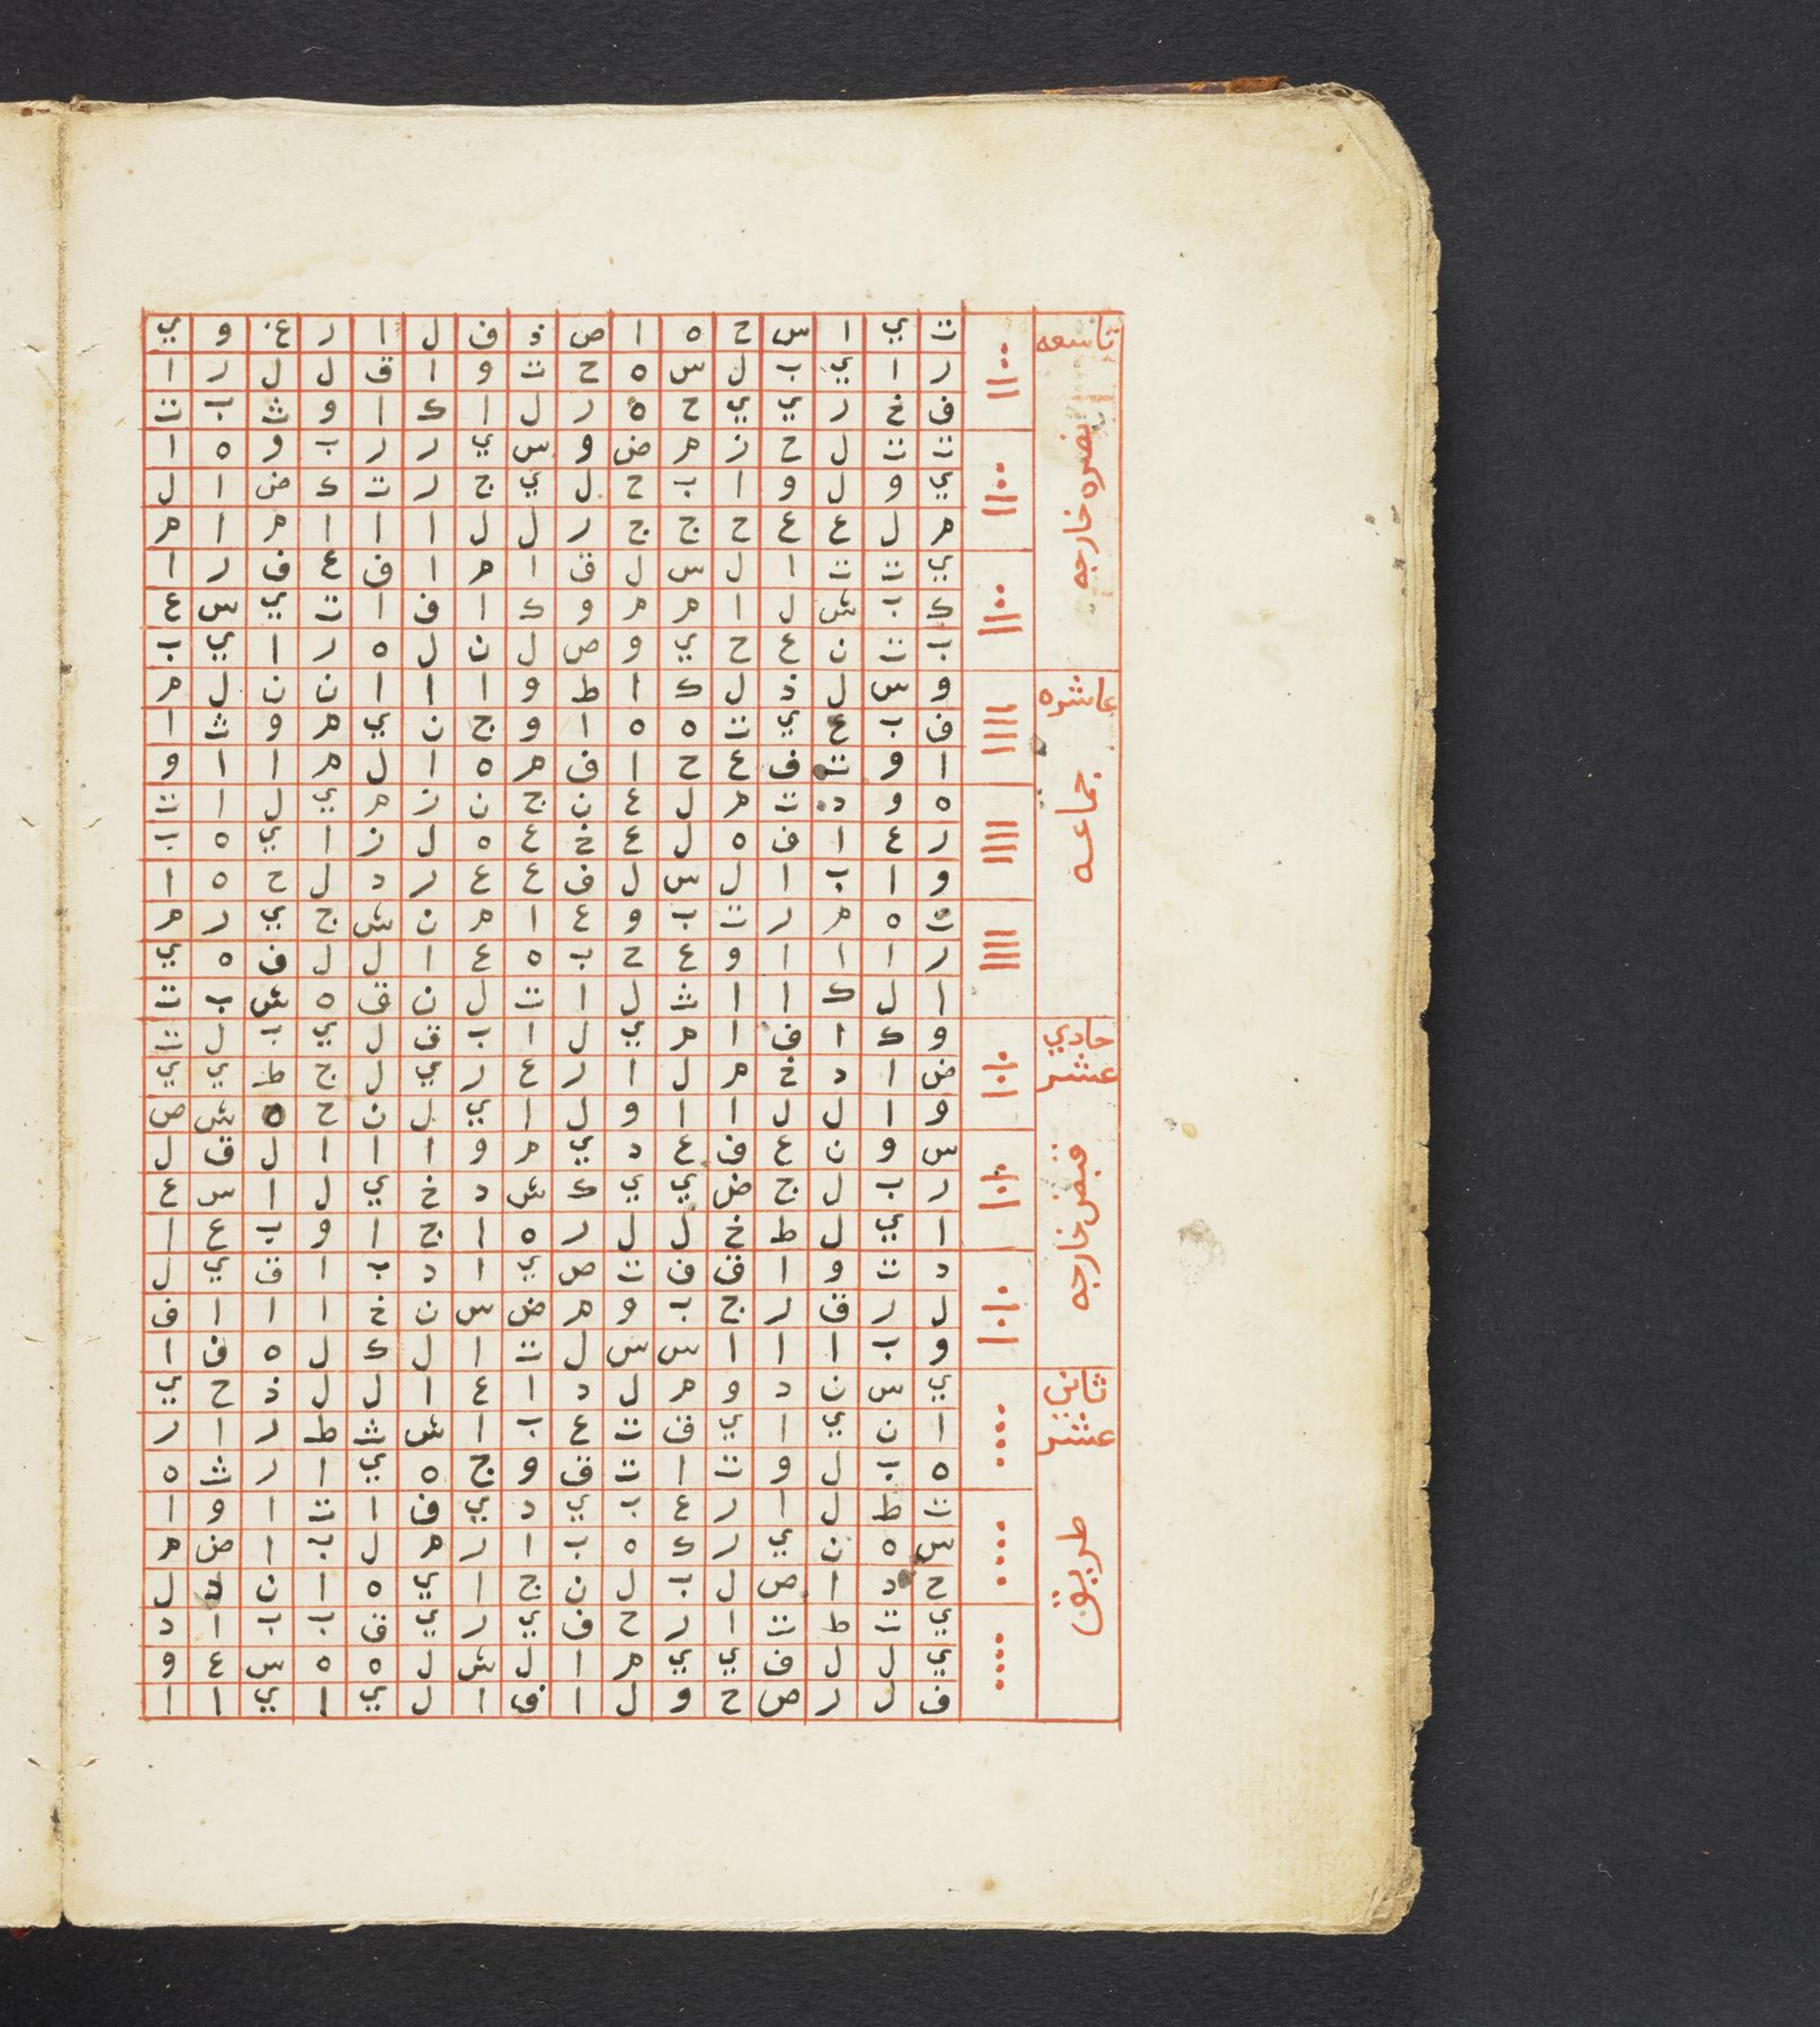 تاسعه
نصره خارجه
ت ي ا س ح ه ا ص ذ ف ل ا ر غ و ي
ر ا ي ب ل س ه ح ت و ا ق ل ل ر ا
ف خ ر ي ي ح ه ر ل ا ك ا و ث ب ت
ت ت ل ح ز م ض و س ي ر ر ب و ه ا
ي و ل و ا ب ح ل ي ج ر ت ك ض ا ل
م ل ع ع ح ج ج ر ل ل ا ا ا م ا م
ي ت ت ا ل س ل ق ا م ا ف ع ف ر ا
ك ب ش ل ا م م و ك ا ف ا ت ي س ع
ب ت ن ع ح ي و ص ل ن ل ه ر ا ي ب
عاشره
جماعه
و س ل ذ ل ك ا ط و ا ا ا ن ن ل م
ف ب ع ي ت ه ه ا و ج ن ي م و ث ا
ا و ت ف ع ح ا ف م ه ا ل م ا ا و
ه و د ت م ل ع ن ج ن ز م ي ل ا ت
ر ع ا ف ه ل ع خ ع ه ل ز ا ي ه ب
و ا ب ا ل س ل ف ع ع ر د ل ح ه ا
ت ه م ر ت ب و ع ا م ن ش ج ي ر م
ر ا ا ا و ع ح ب ه ع ا ل ل ف ه ي
ا ل ك ا ا ث ل ا ت ل ن ق ه ش ب ت
حادي
عشر
قبض خارجه
و ك ا ف ا م ي ل ا ب ق ل ي ب ل ت
ض ا د خ م ل ا ر ع ر ي ل ج ط ي ي
و ا ل ل ا ا و ل ا ي ل ن ح ه ش ص
س و ن ع ف ع د ي م و ا ا ا ل ق ل
ر ب ل ج ض ي ي ك ش د خ ي ل ا س ع
ا ي ل ط خ ل ل ر ه ا ج ا و ب ع ا
د ت و ا ق ف ت ص ي ا د ب ا ق ي ل
ل ر ق ر ج ب و م ض س ن خ ا ا ا ف
و ب ا ا ا س س ل ت ا ل ك ل ه ف ا
ثاني
عشر
طريق
ي س ن د و م ل د ا ع ا ل ل ذ ح ي
ا ن ي ا ي ق ت ع ب ا ش ث ط ر ا ر
ه ب ل و ت ا ت ق و ج ه ي ا ر ث ه
ت ط ل ا ر ع ب ي د ي ف ا ت ا و ا
س ه ن ي ر ك ه ب ا ر م ل ب ا ض م
ح د ا ص ل ب ل ن ج ا ي ه ا ن د ل
ي ت ط ت ا ر ح ف ي ر ي ق ب ب ا د
ي ل ل ف ي ي م ا ل ش ل ه ه س ع و
ف ل ر ص ح و ل ا ق ا ل ي ا ي ا ا